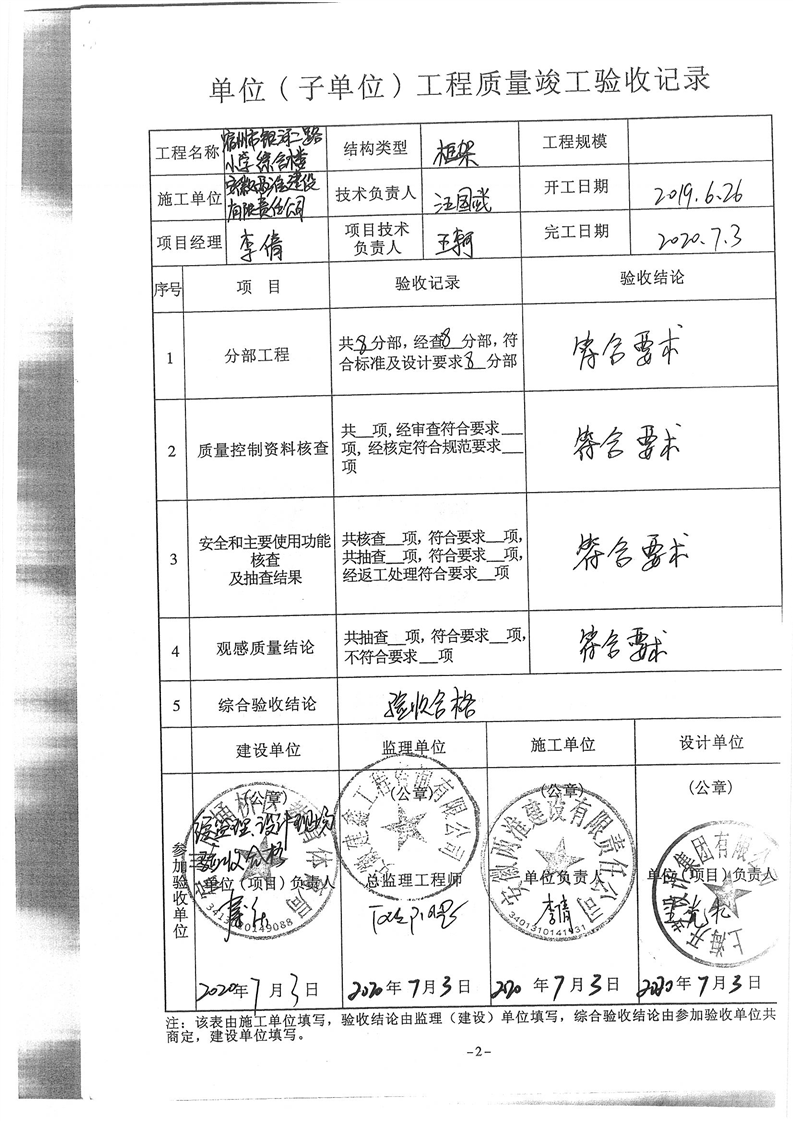 单位（子单位）工程质量竣工验收记录
工程名称 宿州市银河二路小学综合楼 结构类型 框架 工程规模
施工单位 安徽两淮建设有限责任公司 技术负责人 汪国 开工日期 2019.6.26
项目经理 李倩 项目技术负责人 王轲 完工日期 2020.7.3
序号 项 目 验收记录 验收结论
1 分部工程 共8分部，经查8分部，符 符合要求
合标准及设计要求8分部
2 质量控制资料核查 共__项,经审查符合要求__ 符合要求
项,经核定符合规范要求__
项
3 安全和主要使用功能 共核查__项，符合要求__项, 符合要求
核查 共抽查__项，符合要求__项，
及抽查结果 经返工处理符合要求__项
4 观感质量结论 共抽查__项，符合要求__项， 符合要求
不符合要求__项
5 综合验收结论 验收合格
建设单位 监理单位 施工单位 设计单位
参加验收单位
(公章) (公章) (公章) (公章)
经监理.设计现场
验收合格
单位（项目）负责人 总监理工程师 单位负责人 单位（项目）负责人
李倩
工程管理有限公司
安徽两淮建设有限责任公司
3401310141931
集团有限公司
2020年7月3日 2020年7月3日 2020年7月3日 2020年7月3日
注：该表由施工单位填写，验收结论由监理（建设）单位填写，综合验收结论由参加验收单位共
商定，建设单位填写。
-2-